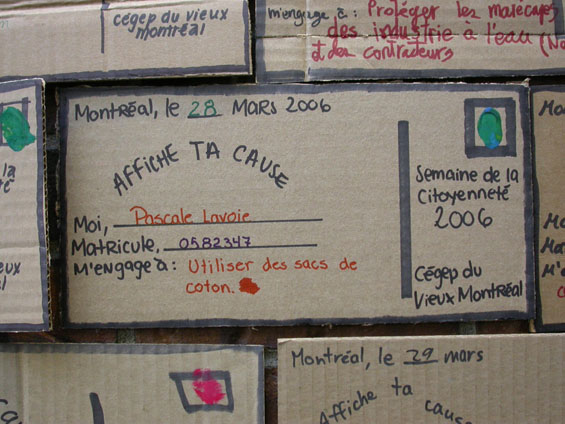 cégep du vieux
montréal
m'engage à : Protéger les marécages
des industrie à l'eau
et des contracteurs
Montréal, le 28 Mars 2006
Affiche ta cause
Moi, Pascale Lavoie
Matricule, 0582347
M'engage à : Utiliser des sacs de
coton.
Semaine de la
Citoyenneté
2006
Cégep du
Vieux Montréal
Montréal, le 29 mars
Affiche ta cause